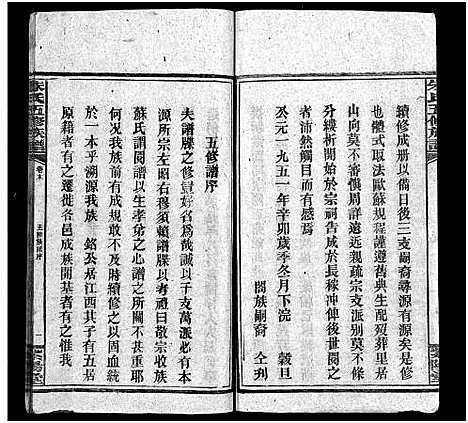 朱氏五修族譜
續修成册以備日後三支嗣裔尋源有源是修
也體式取法歐蘇規程謹遵舊典生配歿葬里居
山向莫不審嚮周詳遠近親疏宗支派別莫不條
分縷析開始於宗祠告成於長稼冲俾後世閱之
者沛然觸目而有感焉
公元一九五一年辛卯歲季冬月下浣 穀旦
闔族嗣裔 仝刋
五修譜序
夫譜牒之修豈好名爲哉誠以子支萬派必有本
源所宗左昭右穆須賴譜牒以考禮曰敬宗收族
蘇氏謂閱譜以生孝弟之心譜之所關不甚重耶
况我族前有成規敢不及時續修之以固血統
於一本乎溯源我族 銘公居江西其子有五居
原籍者有之遷徙各邑成族開基者有之惟我
朱氏五修族譜
卷首
五修族譜序
一